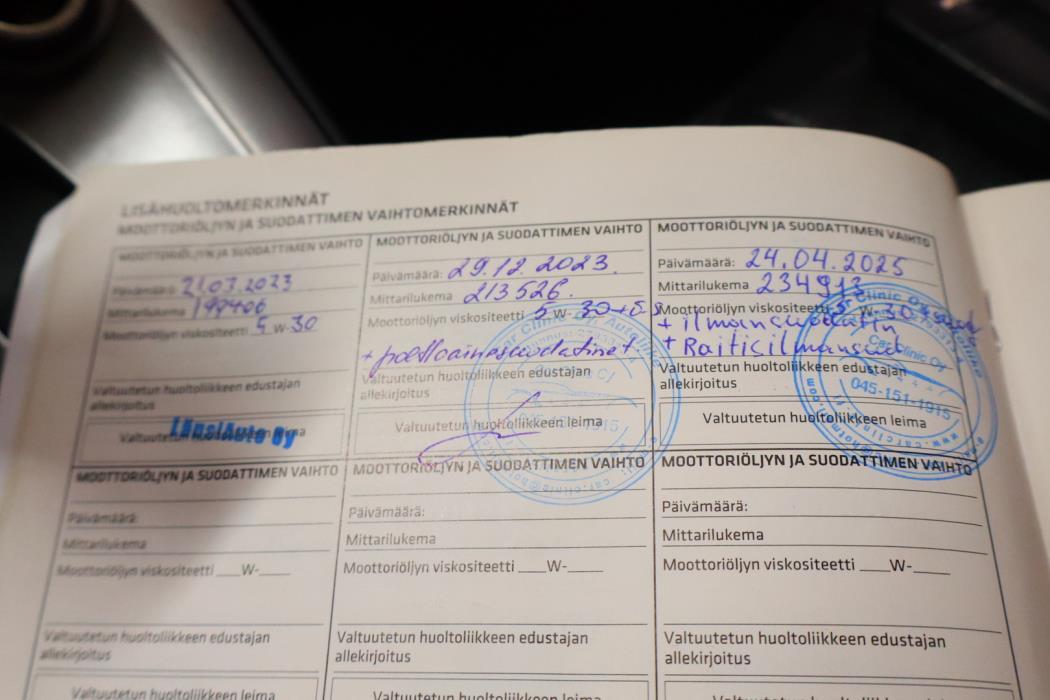 LISÄHUOLTOMERKINNÄT
MOOTTORIÖLJYN JA SUODATTIMEN VAIHTOMERKINNÄT
MOOTTORIÖLJYN JA SUODATTIMEN VAIHTO
Päivämäärä: 21.03.2023
Mittarilukema
Moottoriöljyn viskositeetti 5 W-30
Valtuutetun huoltoliikkeen edustajan
allekirjoitus
Valtuutetun huoltoliikkeen leima
LänsiAuto Oy
MOOTTORIÖLJYN JA SUODATTIMEN VAIHTO
Päivämäärä: 29.12.2023.
Mittarilukema 213526.
Moottoriöljyn viskositeetti 5 W-30
+ polttoainesuodatinet
Valtuutetun huoltoliikkeen edustajan
allekirjoitus
Valtuutetun huoltoliikkeen leima
MOOTTORIÖLJYN JA SUODATTIMEN VAIHTO
Päivämäärä: 24.04.2025
Mittarilukema 234913
Moottoriöljyn viskositeetti 5 W-30
+ ilmansuodatin
+ Raitisilmansuod
Valtuutetun huoltoliikkeen edustajan
allekirjoitus
Car Clinic Oy
045-151-1915
Valtuutetun huoltoliikkeen leima
MOOTTORIÖLJYN JA SUODATTIMEN VAIHTO
Päivämäärä:
Mittarilukema
Moottoriöljyn viskositeetti ___W-____
Valtuutetun huoltoliikkeen edustajan
allekirjoitus
Valtuutetun huoltoliikkeen leima
MOOTTORIÖLJYN JA SUODATTIMEN VAIHTO
Päivämäärä:
Mittarilukema
Moottoriöljyn viskositeetti ____W-_____
Valtuutetun huoltoliikkeen edustajan
allekirjoitus
Valtuutetun huoltoliikkeen leima
MOOTTORIÖLJYN JA SUODATTIMEN VAIHTO
Päivämäärä:
Mittarilukema
Moottoriöljyn viskositeetti ____W-_____
Valtuutetun huoltoliikkeen edustajan
allekirjoitus
Valtuutetun huoltoliikkeen leima